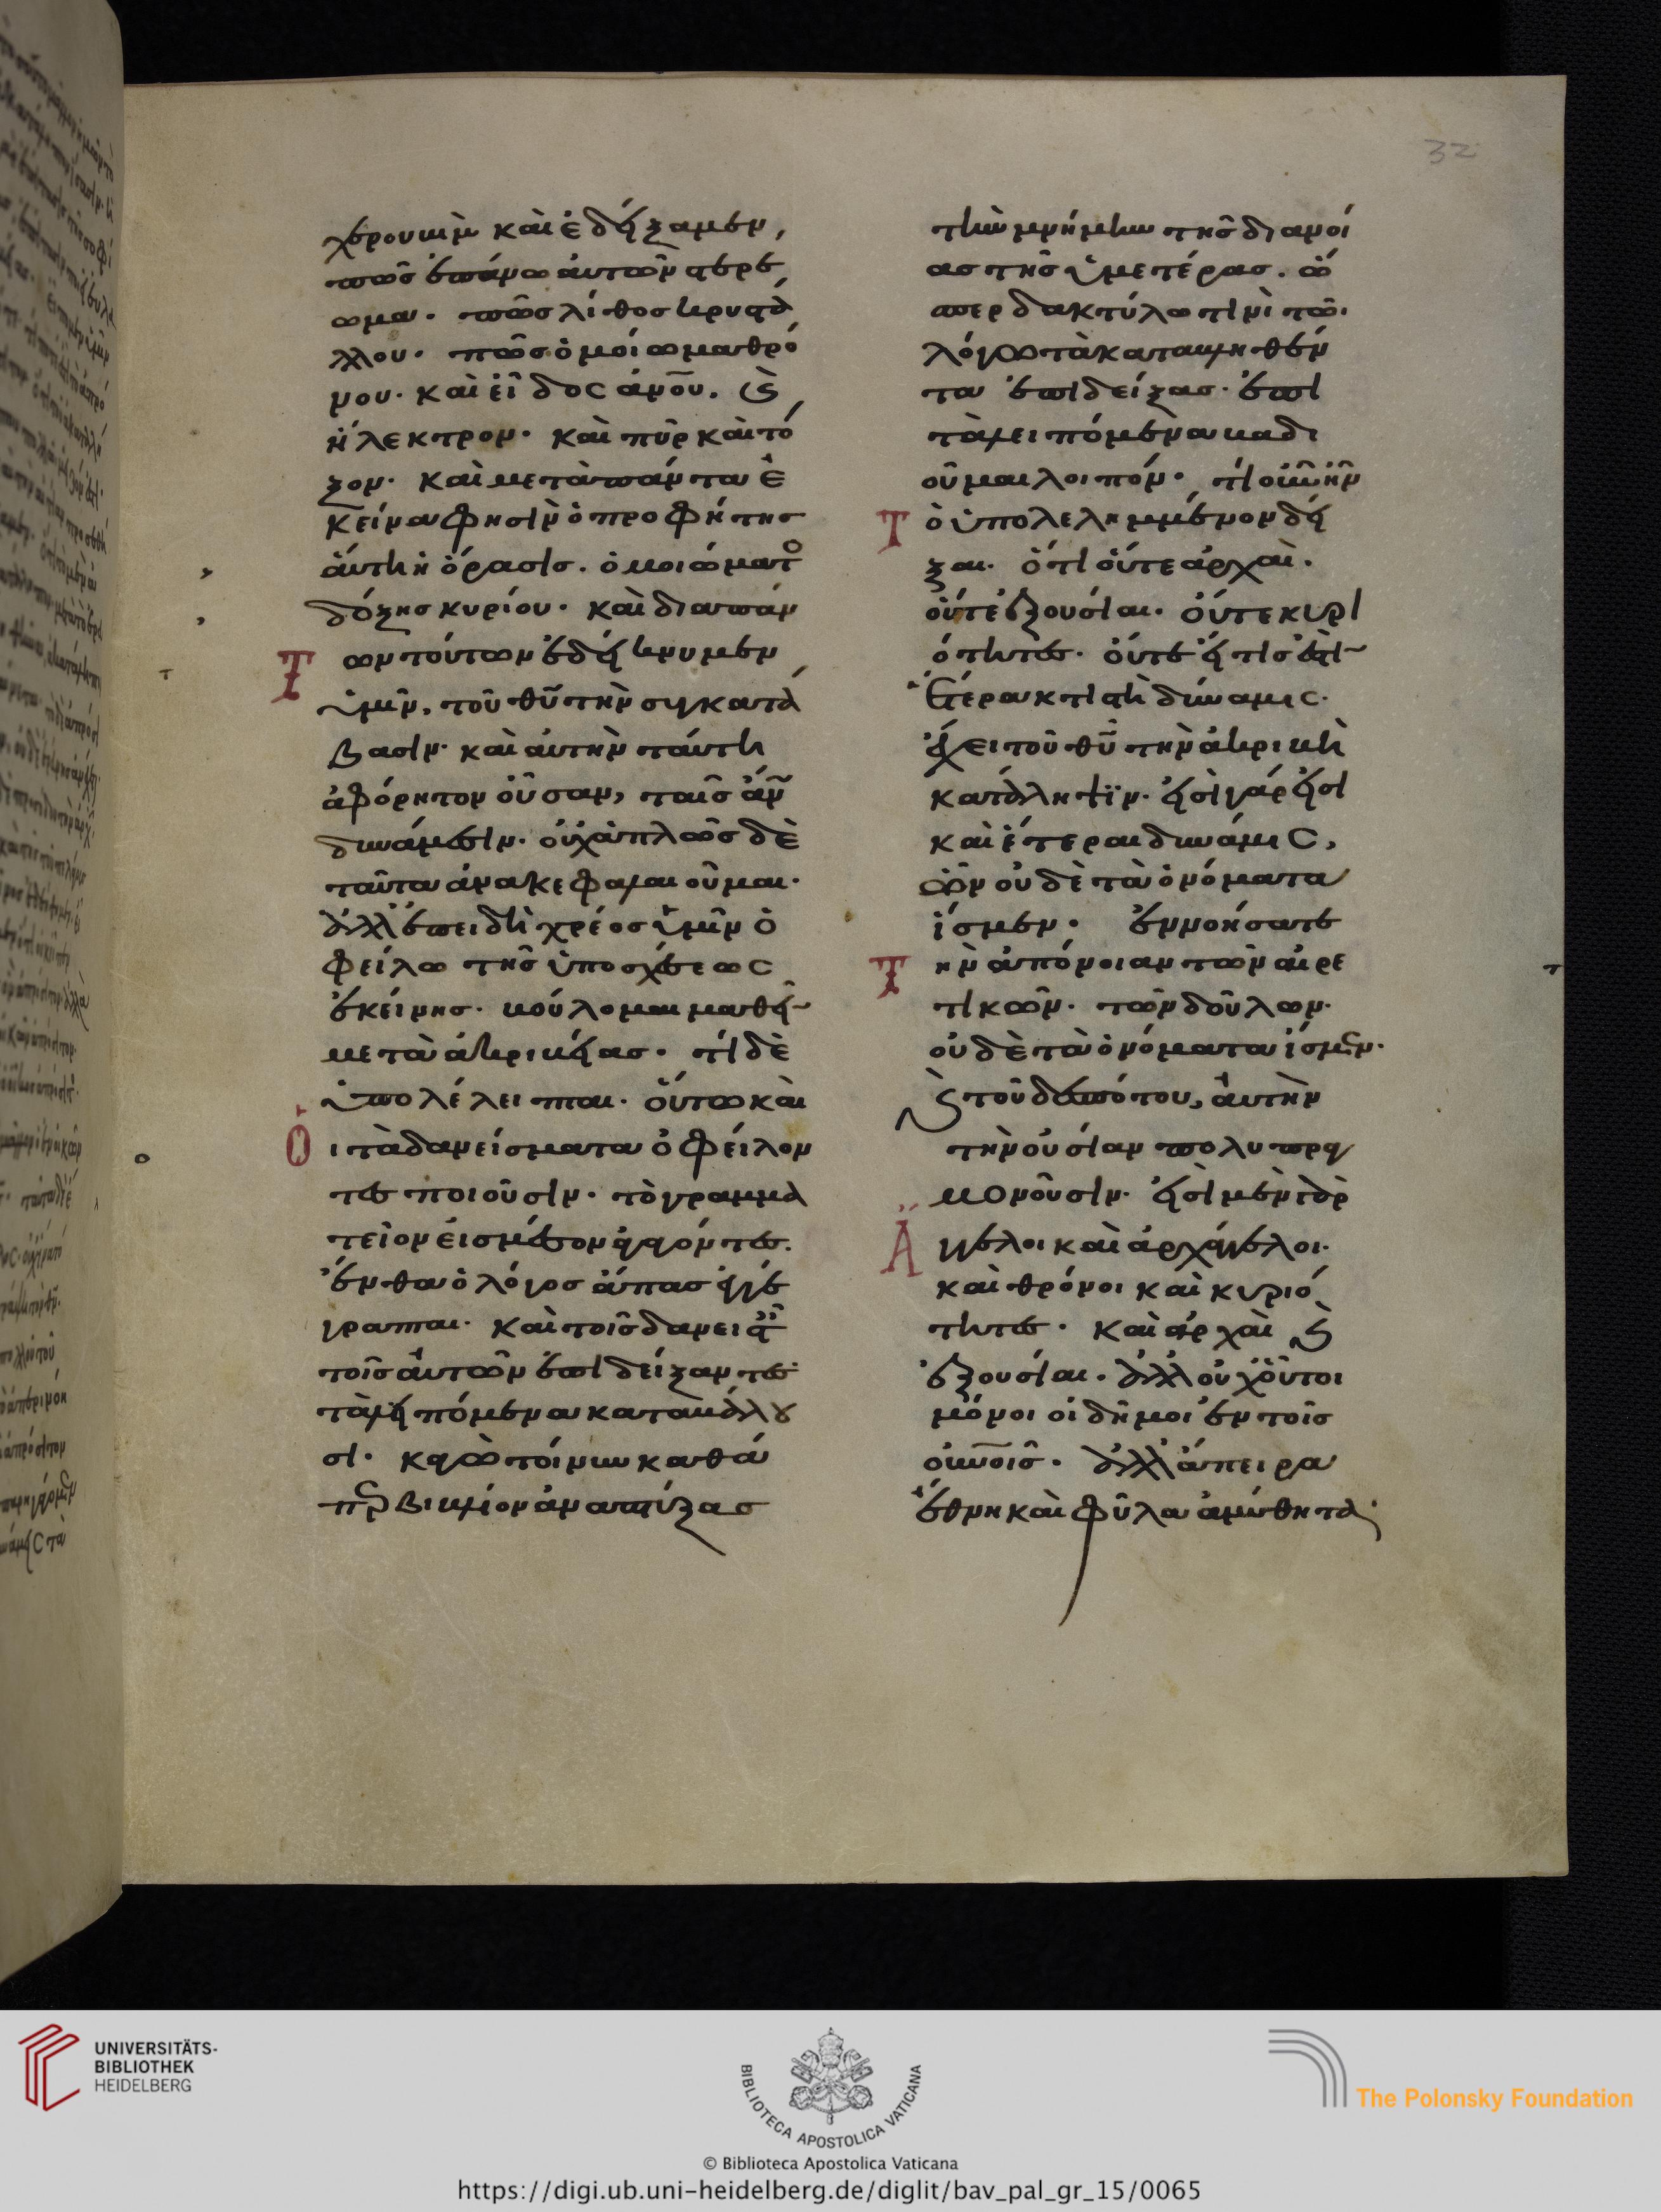 32
χερουβὶμ καὶ ἐδείξαμεν,
πῶς ἐπάνω αὐτῶν στερέ
ωμα. πῶς λίθος κρυστά
λλου. πῶς ὁμοίωμα θρό
νου. καὶ εἶδος ἀνου. ϗ
ἠλεκτρον. καὶ πῦρ καὶ τό
ξον. καὶ μετὰ πάντα ἐ
κείνα φησὶν ὁ προφήτης
αὕτη ἡ ὅρασις. ὁμοιώματο
δόξης κυρίου. καὶ διαπάν
Των τούτων ἐδείκνυμεν
ὑμῖν, τοῦ θυ τὴν συγκατά
βασιν. καὶ αὐτὴν ταύτη
ἀφόρητον οὖσαν, ταῖς ἄν
δυνάμεσιν. οὐχ ἁπλῶς δὲ
ταῦτα ἀνακεφαλαιοῦμαι.
ἀλλ' ἐπειδὴ χρέος ὑμῖν ὀ
φείλω τῆς ὑποσχέσεως
ἐκείνης. βούλομαι μαθεῖ
μετὰ ἀκριβείας. τί δὲ
ὑπολέλειπται. οὕτω καὶ
Οἱ τὰ δανείσματα ὀφείλον
τες ποιοῦσιν. τὸ γραμμα
τεῖον εἰς μέσον ἄγοντες.
ἔνθα ὁ λόγος ἅπας ἐγγέ
γραπται. καὶ τοῖς δανεισταῖς
τοῖς αὐτῶν ἐπιδείξαντες
τὰ λειπόμενα καταβάλου
σι. κἀγὼ τοίνυν καθά
περ βιβλίον ἀναπτύξας
τὴν μνήμην τῆς διανοί
ας τῆς ὑμετέρας. ὥ
σπερ δακτύλω τινὶ τῶ
λόγω τὰ καταβληθέν
τα ἐπιδείξας. ἐπὶ
τὰ λειπόμενα βαδι
οῦμαι λοιπόν. τί οὖν ἦν
Τὸ ὑπολελημμένον δεῖ
ξαι. ὅτι οὔτε ἀρχαὶ.
οὔτε ἐξουσίαι. οὔτε κυρι
ότητες. οὔτε εἴ τις ἐστὶ
ἑτέρα κτιστὴ δύναμις.
ἔχει τοῦ θυ τὴν ἀκριβῆ
κατάληψιν. εἰσὶ γάρ εἰσι
καὶ ἕτεραι δυνάμεις,
ὧν οὐδὲ τὰ ὀνόματα
ἴσμεν. ἐννοήσατε
Τὴν ἀπόνοιαν τῶν αἱρε
τικῶν. τῶν δούλων.
οὐδὲ τὰ ὀνόματα ἴσμεν.
ϗ τοῦ δεσπότου, αὐτὴν
τὴν οὐσίαν πολυπραγ
μονοῦσιν. εἰσὶ μὲν γὰρ
Ἄγγελοι καὶ ἀρχάγγελοι.
καὶ θρόνοι καὶ κυριό
τητες. καὶ ἀρχαὶ ϗ
ἐξουσίαι. ἀλλ' οὐχ οὗτοι
μόνοι οἱ δῆμοι ἐν τοῖς
οὐνοῖς. ἀλλ' ἄπειρα
ἔθνη καὶ φῦλα ἀμύθητα.
UNIVERSITÄTS-
BIBLIOTHEK
HEIDELBERG
BIBLIOTECA APOSTOLICA VATICANA
© Biblioteca Apostolica Vaticana
The Polonsky Foundation
https://digi.ub.uni-heidelberg.de/diglit/bav_pal_gr_15/0065